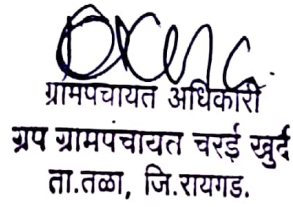 ग्रामपंचायत अधिकारी
ग्रुप ग्रामपंचायत चरई खुर्द
ता.तळा, जि.रायगड.